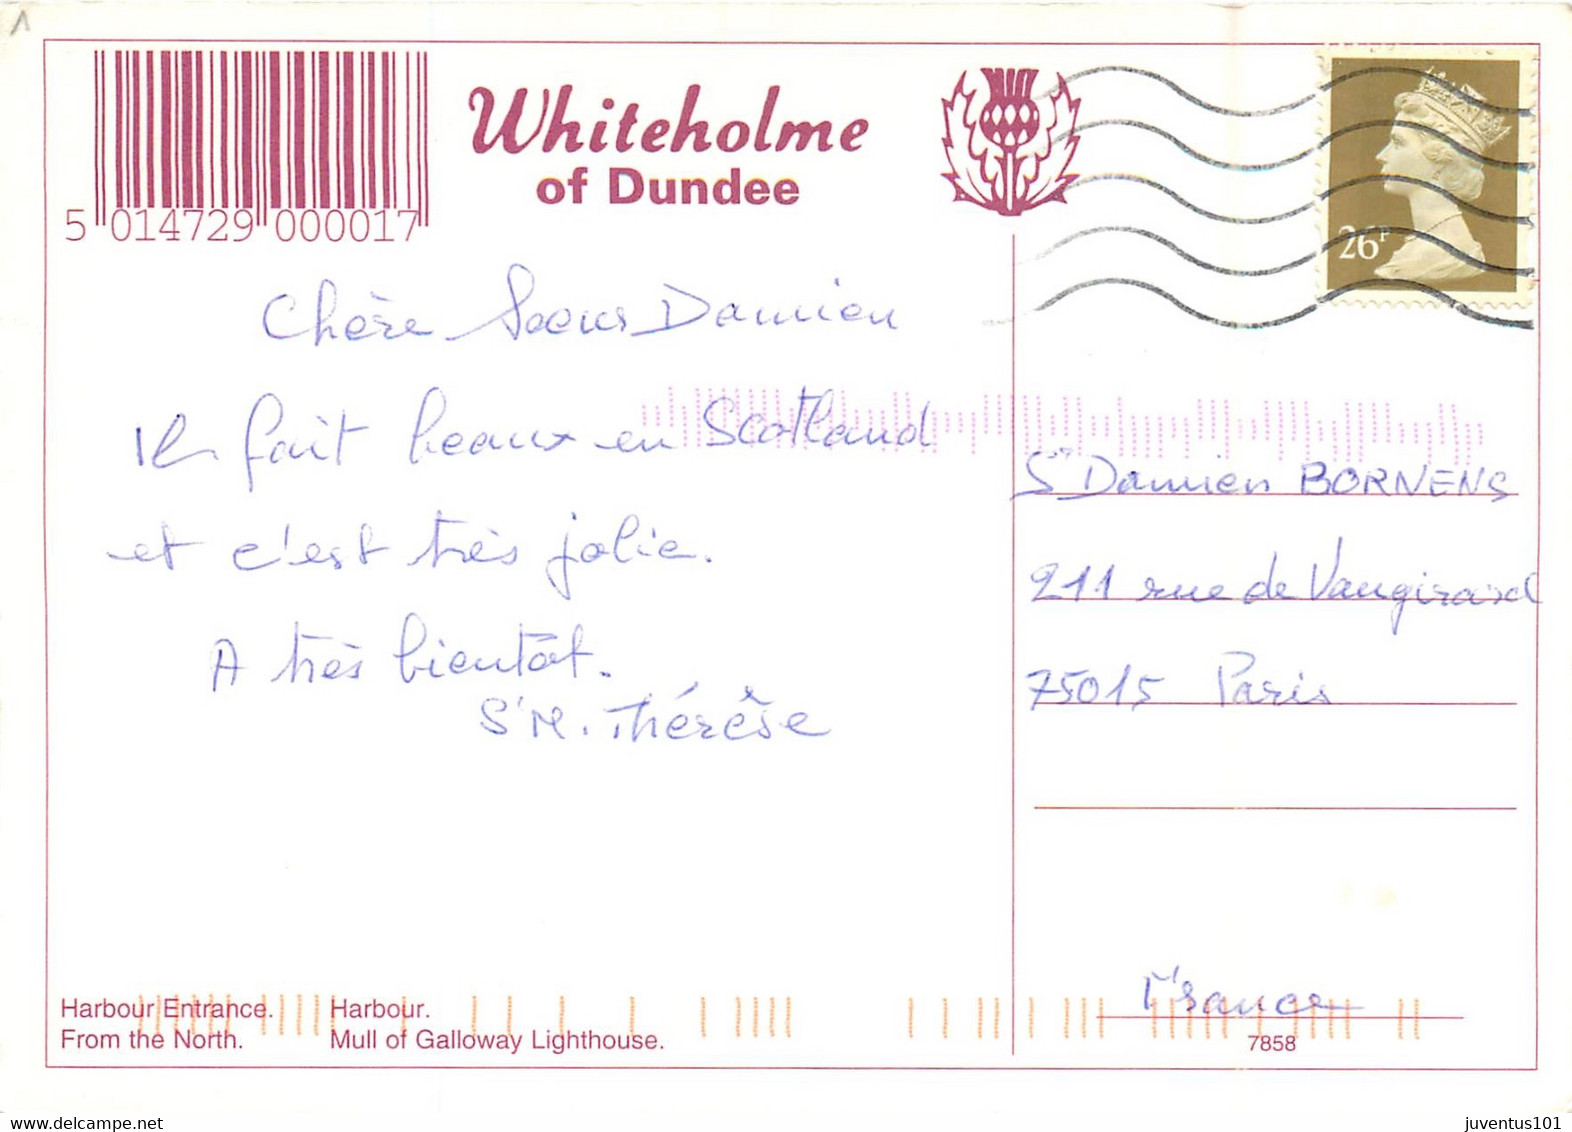 1
Whiteholme
of Dundee
5 014729 000017
26P
Chère Soeur Damien
Il fait beau en Scotland
et c'est très jolie.
A très bientôt.
Sr M. Thérèse
Sr Damien BORNENS
211 rue de Vaugirard
75015 Paris
France
Harbour Entrance.
From the North.
Harbour.
Mull of Galloway Lighthouse.
7858
www.delcampe.net
juventus101